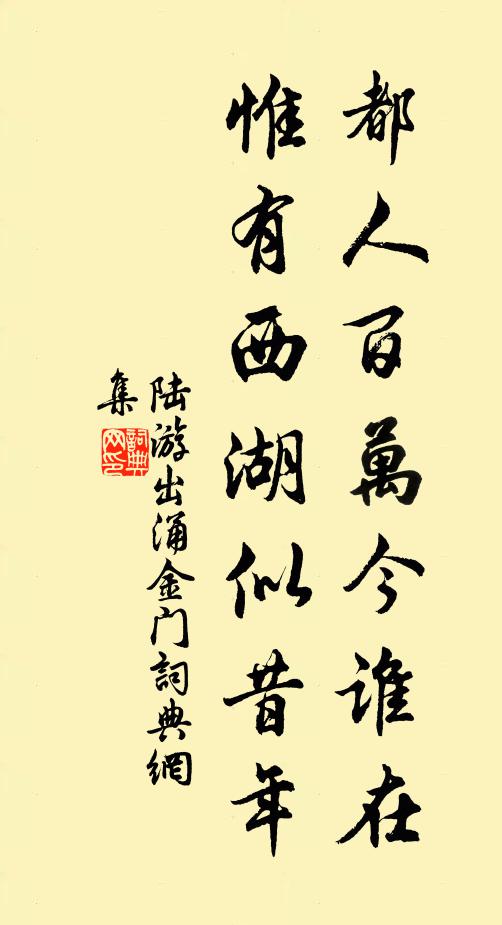 都人百萬今誰在
惟有西湖似昔年
陆游出涌金门詞典網
集
詞典
网印